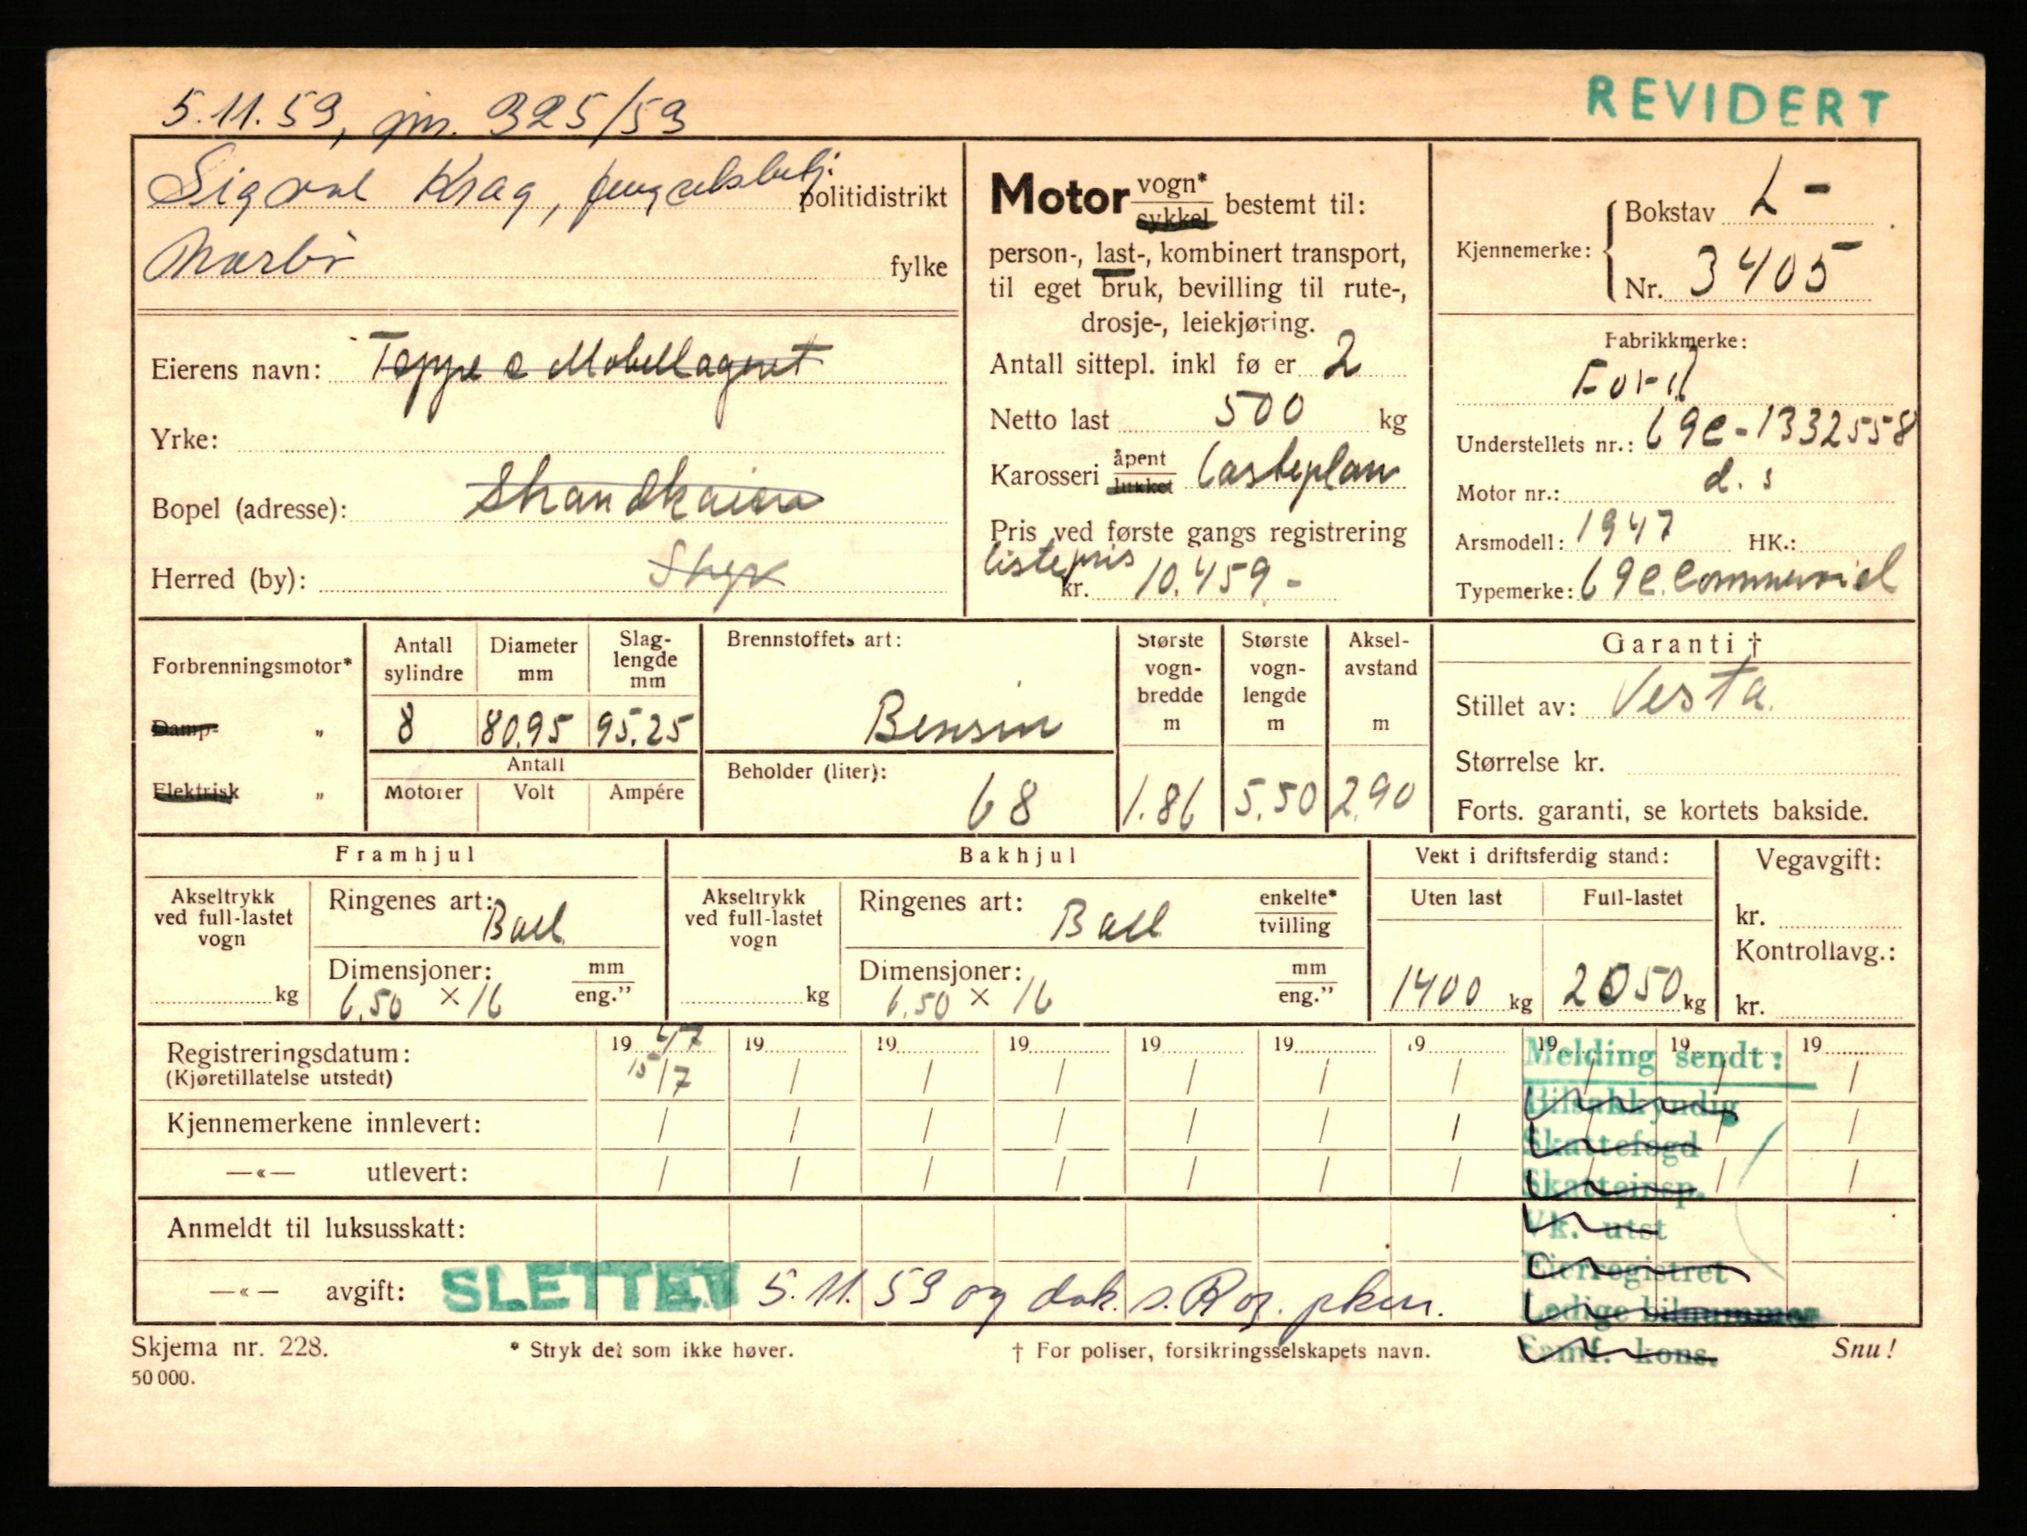 REVIDERT
5.11.59, jnr. 325/59
Sigval Krag, fengselsbetj.
politidistrikt
Nærbø
fylke
Eierens navn: Teppe & Møbellageret
Yrke:
Bopel (adresse): Strandkaien
Herred (by): Stgr
Motor vogn* sykkel bestemt til:
person-, last-, kombinert transport,
til eget bruk, bevilling til rute-,
drosje-, leiekjøring.
Antall sittepl. inkl fø er 2
Netto last 500 kg
Karosseri åpent lukket lasteplan
Pris ved første gangs registrering
listepris
kr. 10.459 -
Kjennemerke: Bokstav L-
Nr. 3405
Fabrikkmerke:
Ford
Understellets nr.: 69c-1332558
Motor nr.: d. s
Arsmodell: 1947 HK.:
Typemerke: 69C Commercial
Forbrenningsmotor*
Damp- „
Elektrisk „
Antall sylindre 8
Diameter mm 80.95
Slag-lengde mm 95.25
Antall
Motorer Volt Ampére
Brennstoffets art:
Bensin
Beholder (liter):
68
Største vogn-bredde m 1.86
Største vogn-lengde m 5.50
Aksel-avstand m 2.90
Garanti †
Stillet av: Vesta
Størrelse kr.
Forts. garanti, se kortets bakside.
Framhjul
Akseltrykk ved full-lastet vogn kg
Ringenes art: Ball
Dimensjoner: mm eng."
6.50 × 16
Bakhjul
Akseltrykk ved full-lastet vogn kg
Ringenes art: Ball enkelte* tvilling
Dimensjoner: mm eng."
6.50 × 16
Vekt i driftsferdig stand:
Uten last Full-lastet
1400 kg 2050 kg
Vegavgift:
kr.
Kontrollavg.:
kr.
Registreringsdatum: 19 47 19 19 19 19 19 19 19 19 19
(Kjøretillatelse utstedt) 15/7 / / / / / / / / /
Kjennemerkene innlevert: / / / / / / / / / /
—«— utlevert: / / / / / / / / /
Anmeldt til luksusskatt:
—«— avgift: SLETTET 5.11.59 og dok. s. Rog. pkm.
Melding sendt:
Bilsakkyndig
Skattefogd
Skatteinsp.
Vk. utst
Eierregistret
Ledige bilnummer
Samf. kons.
Skjema nr. 228. * Stryk det som ikke høver. † For poliser, forsikringsselskapets navn. Snu!
50 000.